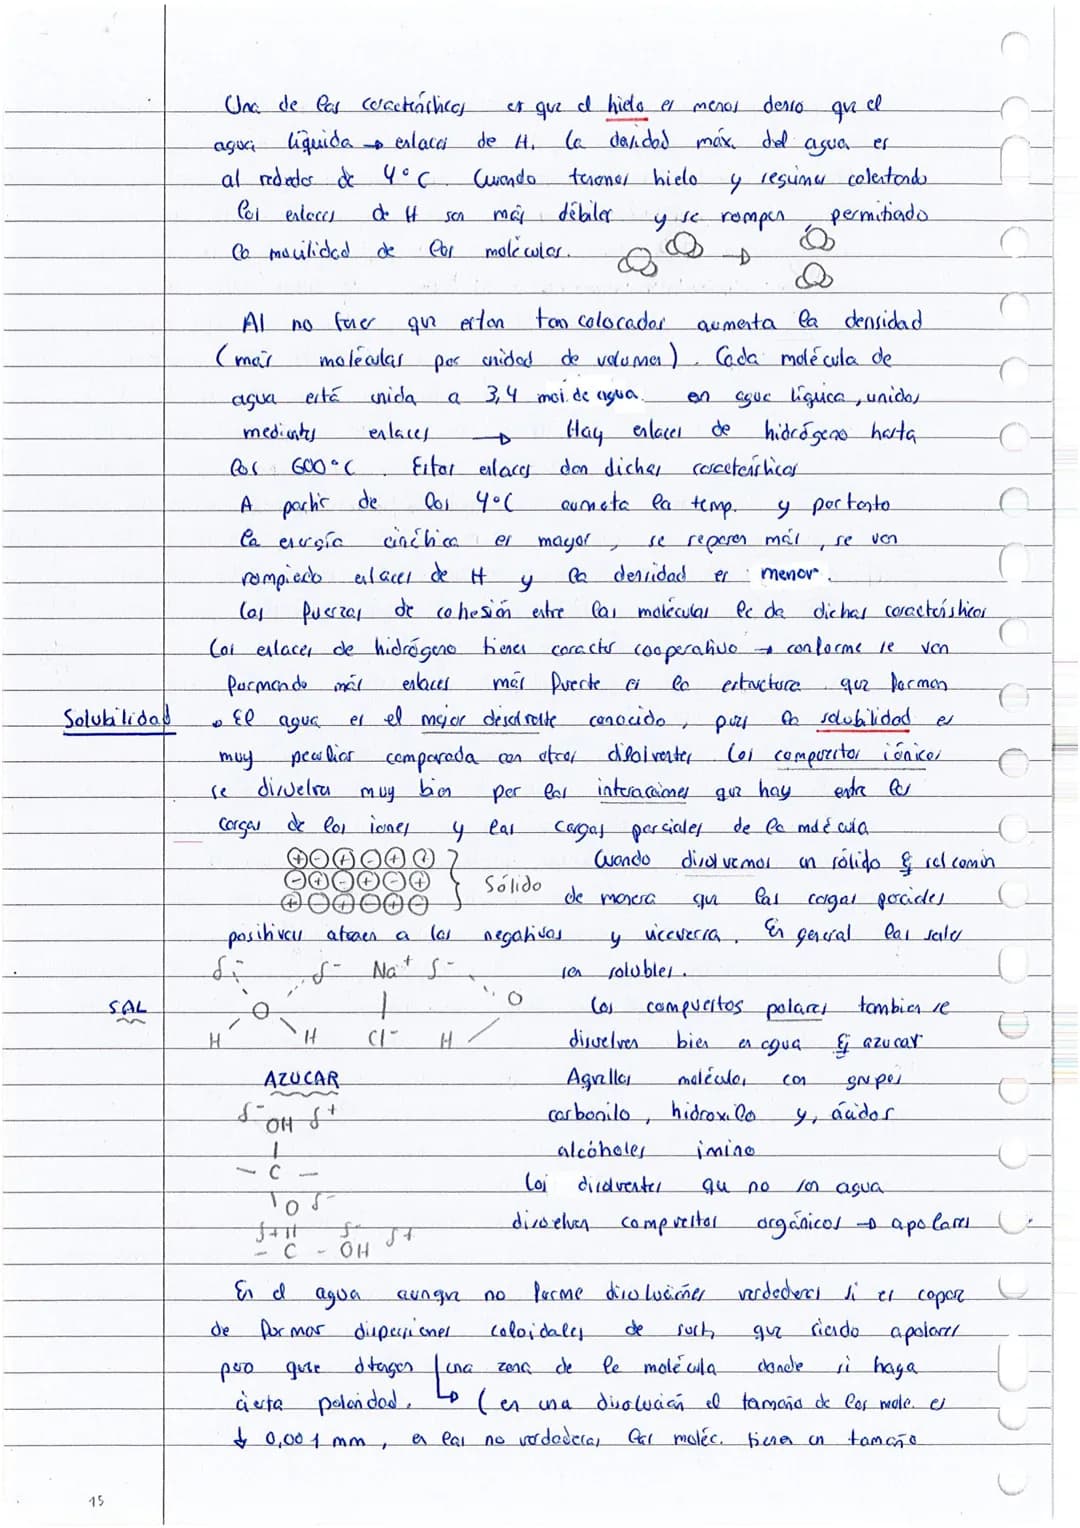 Una de las características es que el hielo es menos denso que el
agua líquida → enlaces de H. La densidad máx. del agua es
al rededor de 4°C. Cuando tenemos hielo y seguimos calentando
los enlaces de H son más débiles y se rompen, permitiendo
la movilidad de las moléculas.
Al no tener que estan tan colocados aumenta la densidad
(más moléculas por unidad de volumen). Cada molécula de
agua está unida a 3,4 mol. de agua en agua líquida, unidas
mediantes enlaces → Hay enlaces de hidrógeno hasta
los 600°C. Estos enlaces dan dichas características
A partir de los 4°C aumeta la temp. y por tanto
la energía cinética es mayor, se separan más, se van
rompiendo enlaces de H y la densidad es menor.
Las fuerzas de cohesión entre las moléculas le da dichas características
Los enlaces de hidrógeno tienen caracter cooperativo → conforme se van
formando más enlaces más fuerte es la estructura que forman
Solubilidad
• El agua es el mejor disolvente conocido, pues la solubilidad es
muy peculiar comparada con otros disolventes. Los compuestos iónicos
se disuelven muy bien por las interacciones que hay entre las
cargas de los iones y las cargas parciales de la molécula
+ - + - + +
- + - + - +
+ - + - + -
Sólido
Cuando disolvemos un sólido Ej sal común
de manera que las cargas parciales
positivas atraen a las negativas y viceversa. En general las sales
son solubles.
SAL
δ- δ- Na+ δ-
O O
H H Cl- H
Los compuestos polares tambien se
disuelven bien en agua Ej azucar
AZUCAR
Aquellas moléculas con grupos
carbonilo, hidroxilo y, ácidos
alcóholes imino
δ- OH δ+
- C -
O δ-
δ+ H δ-
- C - OH δ+
Los disolventes que no son agua
disuelven compuestos orgánicos → apolares
En el agua aunque no forme disoluciones verdaderas si es capaz
de formar dispersiones coloidales de sust, que siendo apolares
pero que tengan una zona de la molécula donde si haya
cierta polaridad. ↳ (en una disolución el tamaño de las molé. es
↓ 0,001 mm, en las no verdaderas las moléc. tienen un tamaño
15